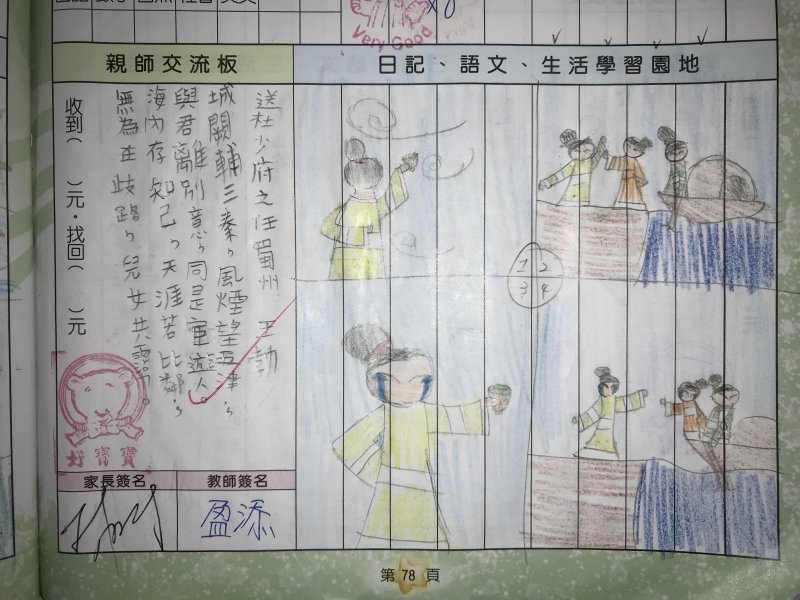 Very Good
親師交流板
日記、語文、生活學習園地
送杜少府之任蜀州 王勃
城闕輔三秦，風煙望五津，
與君離別意，同是宦遊人。
海內存知己，天涯若比鄰，
無為在歧路，兒女共霑巾。
收到( )元．找回( )元
1 2
3 4
好寶寶
家長簽名
教師簽名
盈添
第 78 頁